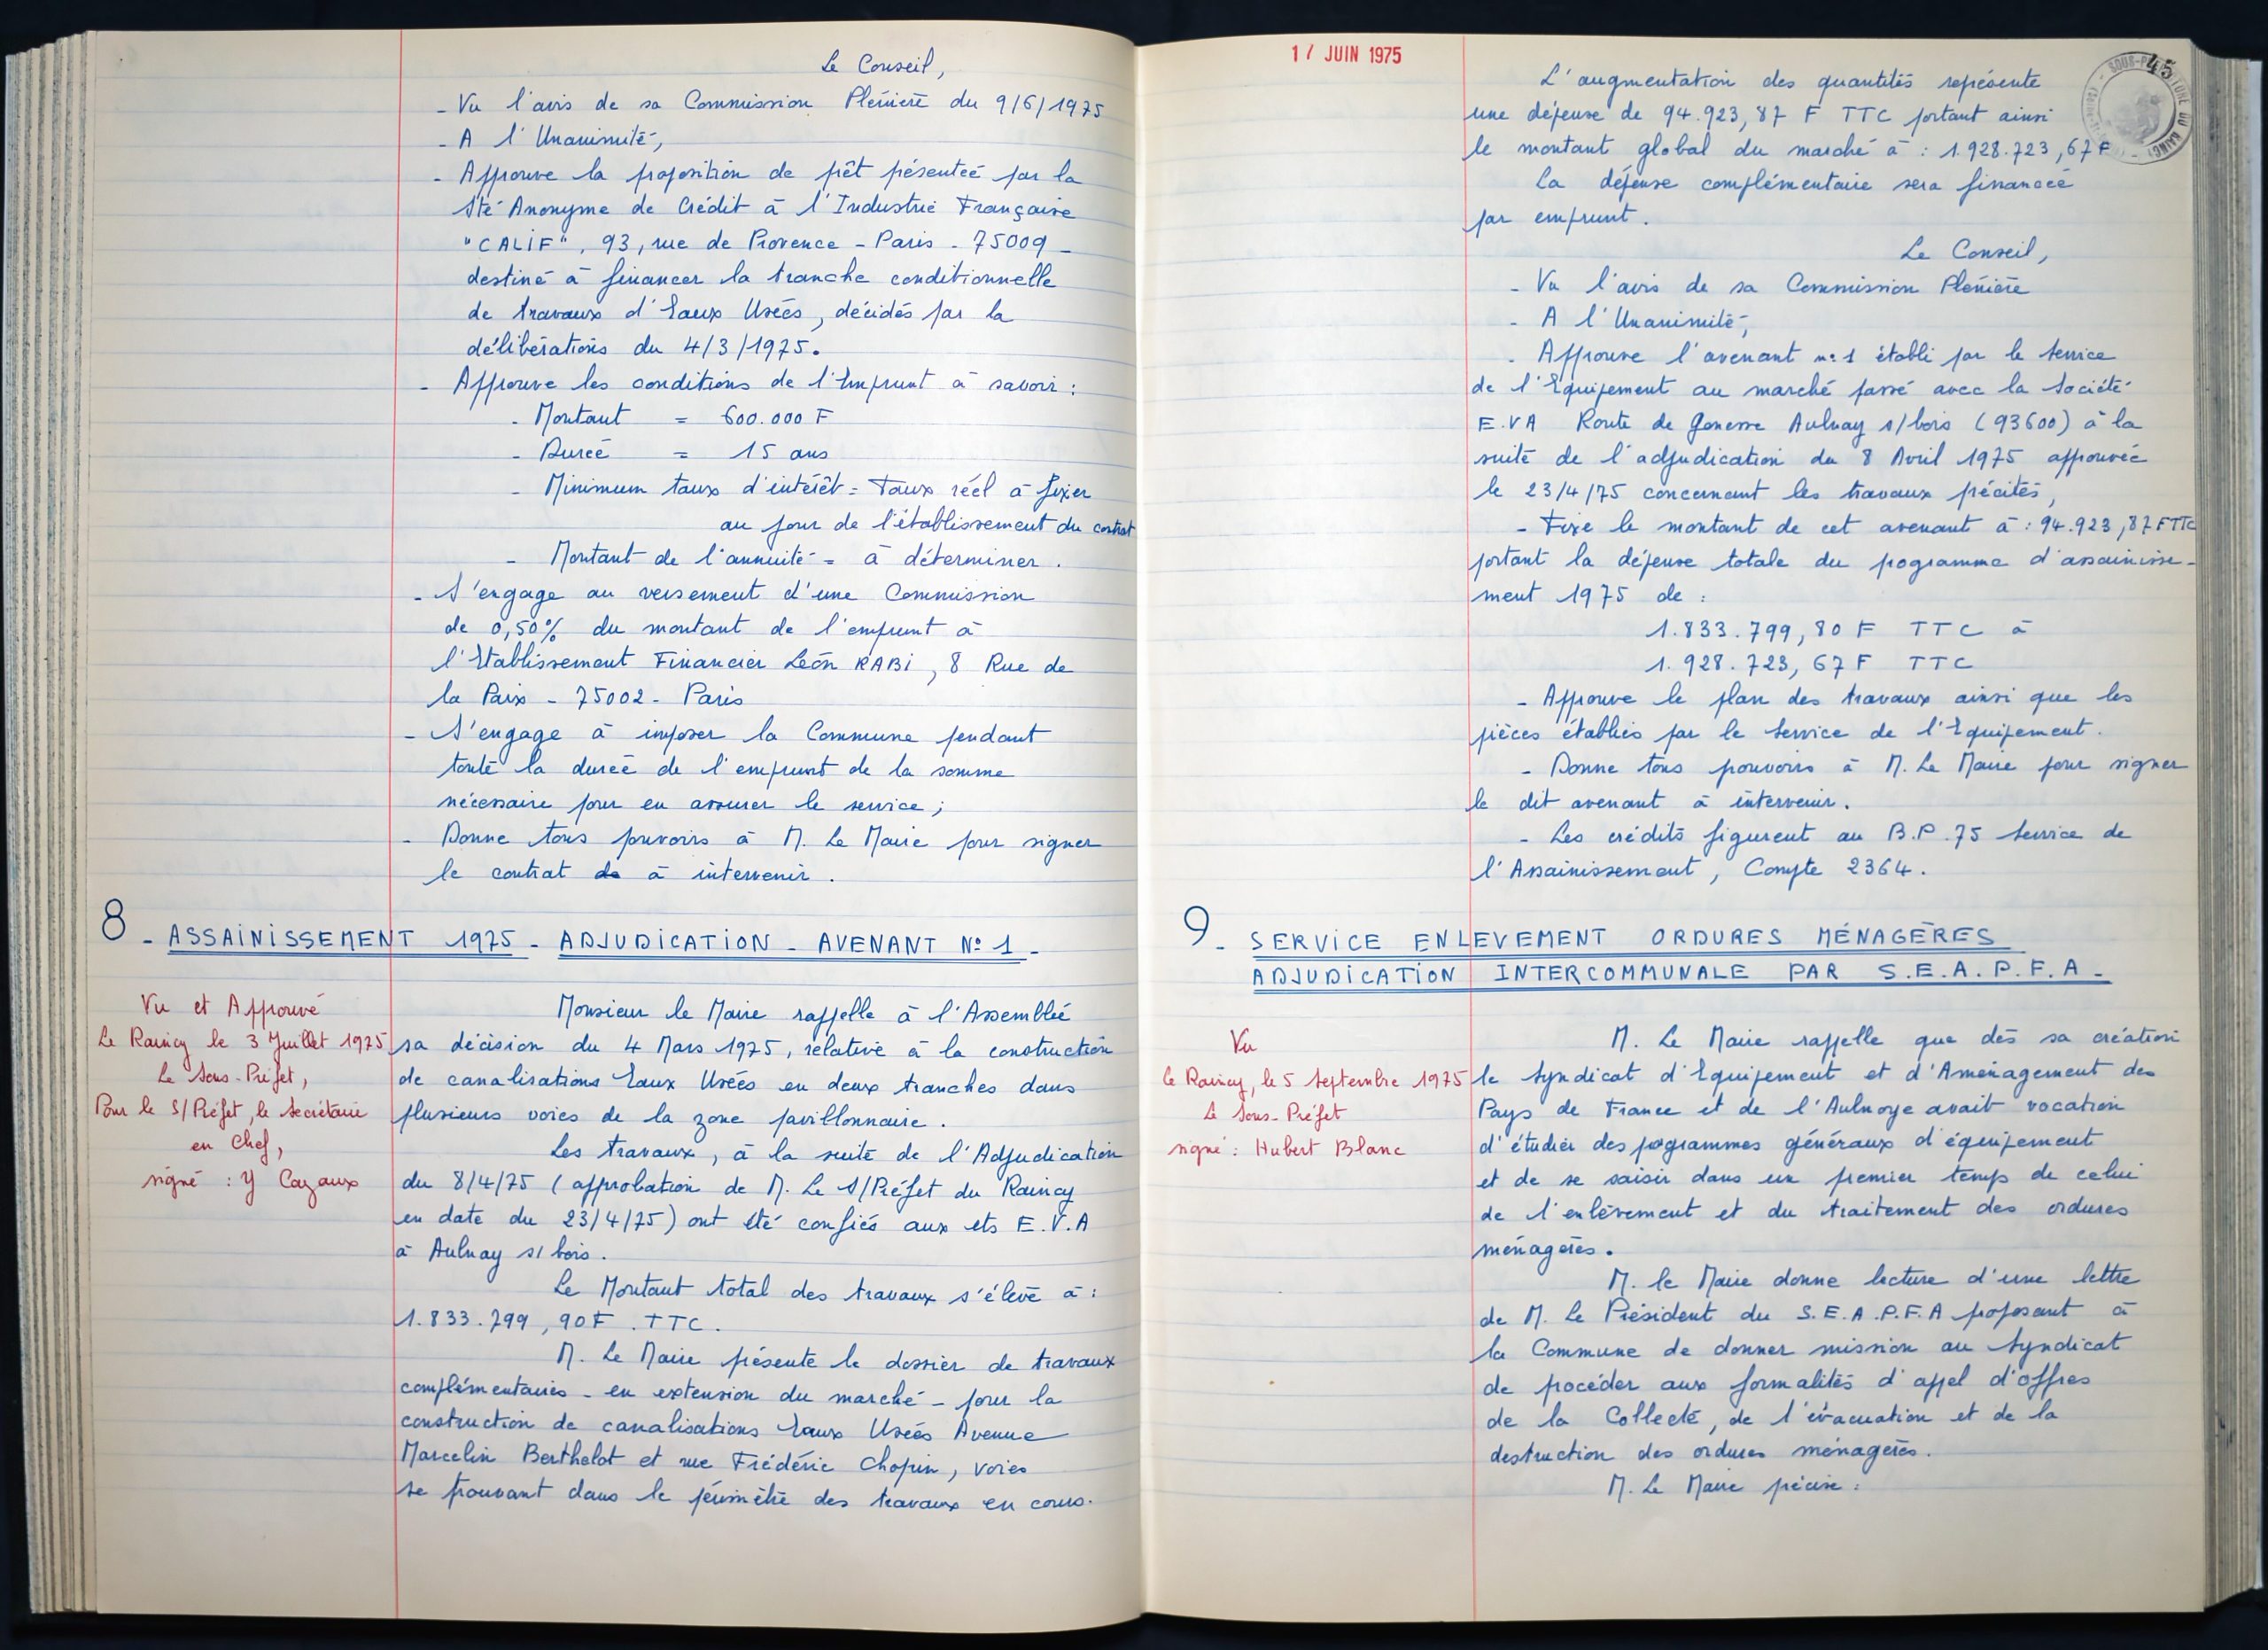 Le Conseil,
- Vu l'avis de sa Commission Plénière du 9/6/1975
- A l'Unanimité,
- Approuve la proposition de prêt présentée par la
Sté Anonyme de Crédit à l'Industrie Française
"CALIF", 93, rue de Provence - Paris - 75009 -
destiné à financer la tranche conditionnelle
de travaux d'Eaux Usées, décidés par la
délibérations du 4/3/1975.
- Approuve les conditions de l'Emprunt à savoir :
- Montant = 600.000 F
- Durée = 15 ans
- Minimum taux d'intérêt = Taux réel à fixer
au jour de l'établissement du contrat
- Montant de l'annuité = à déterminer.
- S'engage au versement d'une Commission
de 0,50% du montant de l'emprunt à
l'Etablissement Financier Léon RABI, 8 Rue de
la Paix - 75002 - Paris
- S'engage à imposer la Commune pendant
toute la durée de l'emprunt de la somme
nécessaire pour en assurer le service ;
- Donne tous pouvoirs à M. Le Maire pour signer
le contrat de à intervenir.
8 - ASSAINISSEMENT 1975 - ADJUDICATION - AVENANT N° 1 -
Vu et Approuvé
Le Raincy le 3 Juillet 1975
Le Sous-Préfet,
Pour le S/Préfet, le Secrétaire
en Chef,
signé : Y Cazaux
Monsieur le Maire rappelle à l'Assemblée
sa décision du 4 Mars 1975, relative à la construction
de canalisations Eaux Usées en deux tranches dans
plusieurs voies de la zone pavillonnaire.
Les travaux, à la suite de l'Adjudication
du 8/4/75 (approbation de M. Le S/Préfet du Raincy
en date du 23/4/75) ont été confiés aux ets E.V.A
à Aulnay s/bois.
Le Montant total des travaux s'élève à :
1.833.799,90F.TTC.
M. Le Maire présente le dossier de travaux
complémentaires - en extension du marché - pour la
construction de canalisations Eaux Usées Avenue
Marcelin Berthelot et rue Frédéric Chopin, voies
se trouvant dans le périmètre des travaux en cours.
17 JUIN 1975
45
L'augmentation des quantités représente
une dépense de 94.923,87 F TTC portant ainsi
le montant global du marché à : 1.928.723,67 F
La dépense complémentaire sera financée
par emprunt.
Le Conseil,
- Vu l'avis de sa Commission Plénière
- A l'Unanimité,
- Approuve l'avenant n° 1 établi par le Service
de l'Equipement au marché passé avec la Société
E.VA Route de Gonesse Aulnay s/bois (93600) à la
suite de l'adjudication du 8 Avril 1975 approuvée
le 23/4/75 concernant les travaux précités,
- Fixe le montant de cet avenant à : 94.923,87 FTTC
portant la dépense totale du programme d'assainisse-
ment 1975 de :
1.833.799,80 F TTC à
1.928.723,67 F TTC
- Approuve le plan des travaux ainsi que les
pièces établies par le Service de l'Equipement.
- Donne tous pouvoirs à M. Le Maire pour signer
le dit avenant à intervenir.
- Les crédits figurent au B.P.75 Service de
l'Assainissement, Compte 2364.
9 - SERVICE ENLEVEMENT ORDURES MÉNAGÈRES
ADJUDICATION INTERCOMMUNALE PAR S.E.A.P.F.A -
Vu
Le Raincy, le 5 Septembre 1975
Le Sous-Préfet
signé : Hubert Blanc
M. Le Maire rappelle que dès sa création
le Syndicat d'Equipement et d'Aménagement des
Pays de France et de l'Aulnoye avait vocation
d'étudier des programmes généraux d'équipement
et de se saisir dans un premier temps de celui
de l'enlèvement et du traitement des ordures
ménagères.
M. le Maire donne lecture d'une lettre
de M. Le Président du S.E.A.P.F.A proposant à
la Commune de donner mission au Syndicat
de procéder aux formalités d'appel d'offres
de la Collecte, de l'évacuation et de la
destruction des ordures ménagères.
M. Le Maire précise :